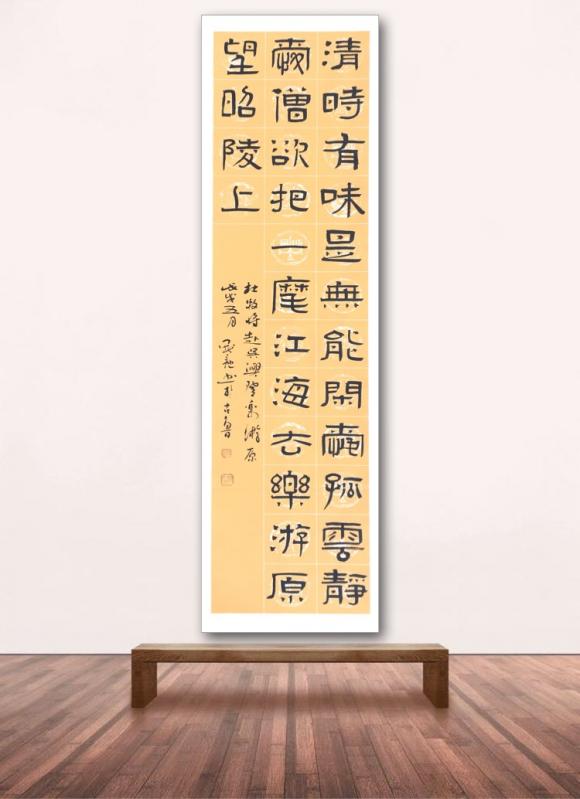 清時有味昰無能閑愛孤雲靜
愛僧欲把一麾江海去樂游原
望昭陵上
杜牧將赴吳興登樂游原
戊戌五月 书於古魯